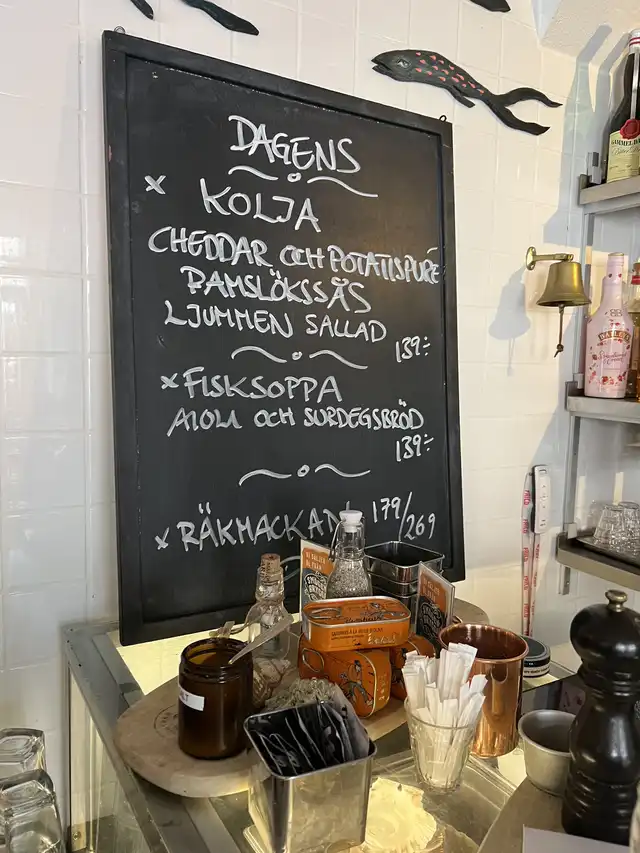 DAGENS
x KOLJA
CHEDDAR OCH POTATISPURÉ
RAMSLÖKSSÅS
LJUMMEN SALLAD
139:-
x FISKSOPPA
AIOLI OCH SURDEGSBRÖD
139:-
x RÄKMACKAN 179/269